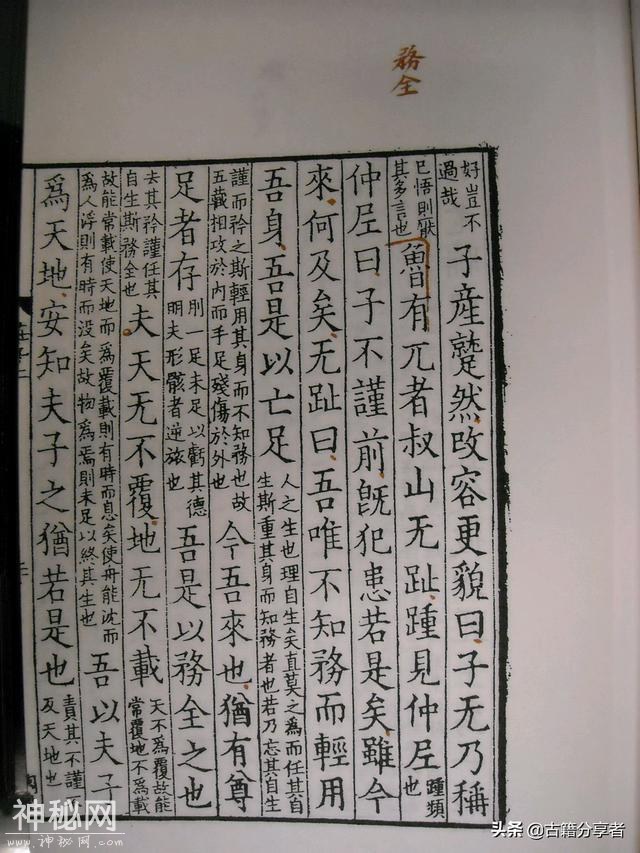 務全
好豈不過哉子產蹵然改容更貌曰子无乃稱
已悟則厭其多言也魯有兀者叔山无趾踵見仲尼踵頻也
仲尼曰子不謹前既犯患若是矣雖今
來何及矣无趾曰吾唯不知務而輕用
吾身吾是以亡足人之生也理自生矣直莫之為而任其自生斯重其身而知務者也若乃忘其自生
謹而矜之斯輕用其身而不知務也故五藏相攻於内而手足殘傷於外也今吾來也猶有尊
足者存刖一足未足以虧其德明夫形骸者逆旅也吾是以務全之也
去其矜謹任其自生斯務全也夫天无不覆地无不載天不為覆故能常覆地不為載
故能常載使天地而為覆載則有時而息矣使舟能沈而為人浮則有時而没矣故物為焉則未足以終其生也吾以夫子
為天地安知夫子之猶若是也責其不謹及天地也
神秘网
www.神秘网.com
头条 @古籍分享者